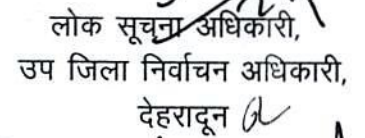 लोक सूचना अधिकारी,
उप जिला निर्वाचन अधिकारी,
देहरादून